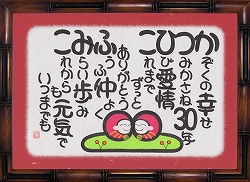 かぞくの幸せ
つみかさね30年
ひび愛情
これまで
ずっと
ありがとう
ふうふ仲よく
みらい歩み
これからも元気で
いつまでも